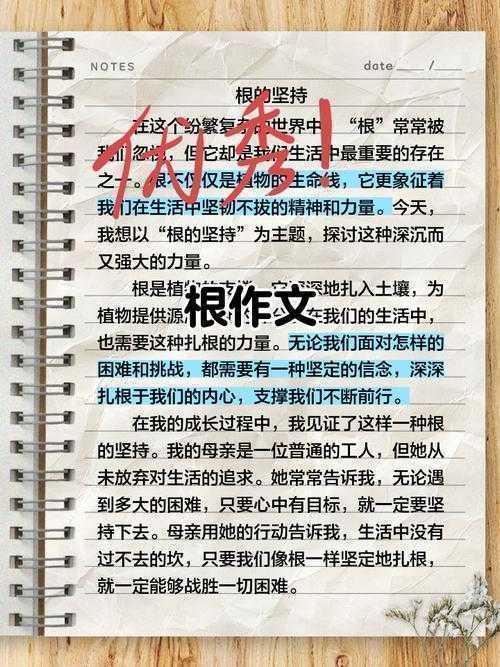 NOTES
date ____ /____
根的坚持
在这个纷繁复杂的世界中，“根”常常被
我们忽视，但它却是我们生活中最重要的存在
之一。根不仅仅是植物的生命线，它更象征着
我们在生活中坚韧不拔的精神和力量。今天，
我想以“根的坚持”为主题，探讨这种深沉而
又强大的力量。
优秀！
根是植物的支撑，它深深地扎入土壤，为
植物提供源 在我们的生活中，
根作文
也需要这种扎根的力量。无论我们面对怎样的
困难和挑战，都需要有一种坚定的信念，深深
扎根于我们的内心，支撑我们不断前行。
在我的成长过程中，我见证了这样一种根
的坚持。我的母亲是一位普通的工人，但她从
未放弃对生活的追求。她常常告诉我，无论遇
到多大的困难，只要心中有目标，就一定要坚
持下去。母亲用她的行动告诉我，生活中没有
过不去的坎，只要我们像根一样坚定地扎根，
就一定能够战胜一切困难。